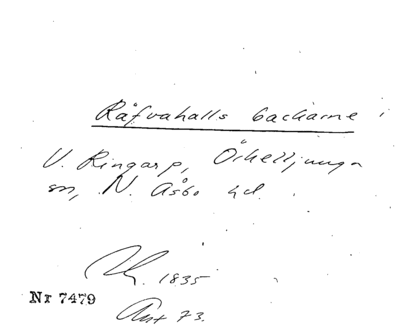 Råfvahalls backarne i
V. Ringarp, Örkelljunga
sn, N. Åsbo hd.
1835
Nr 7479
Ant 73.